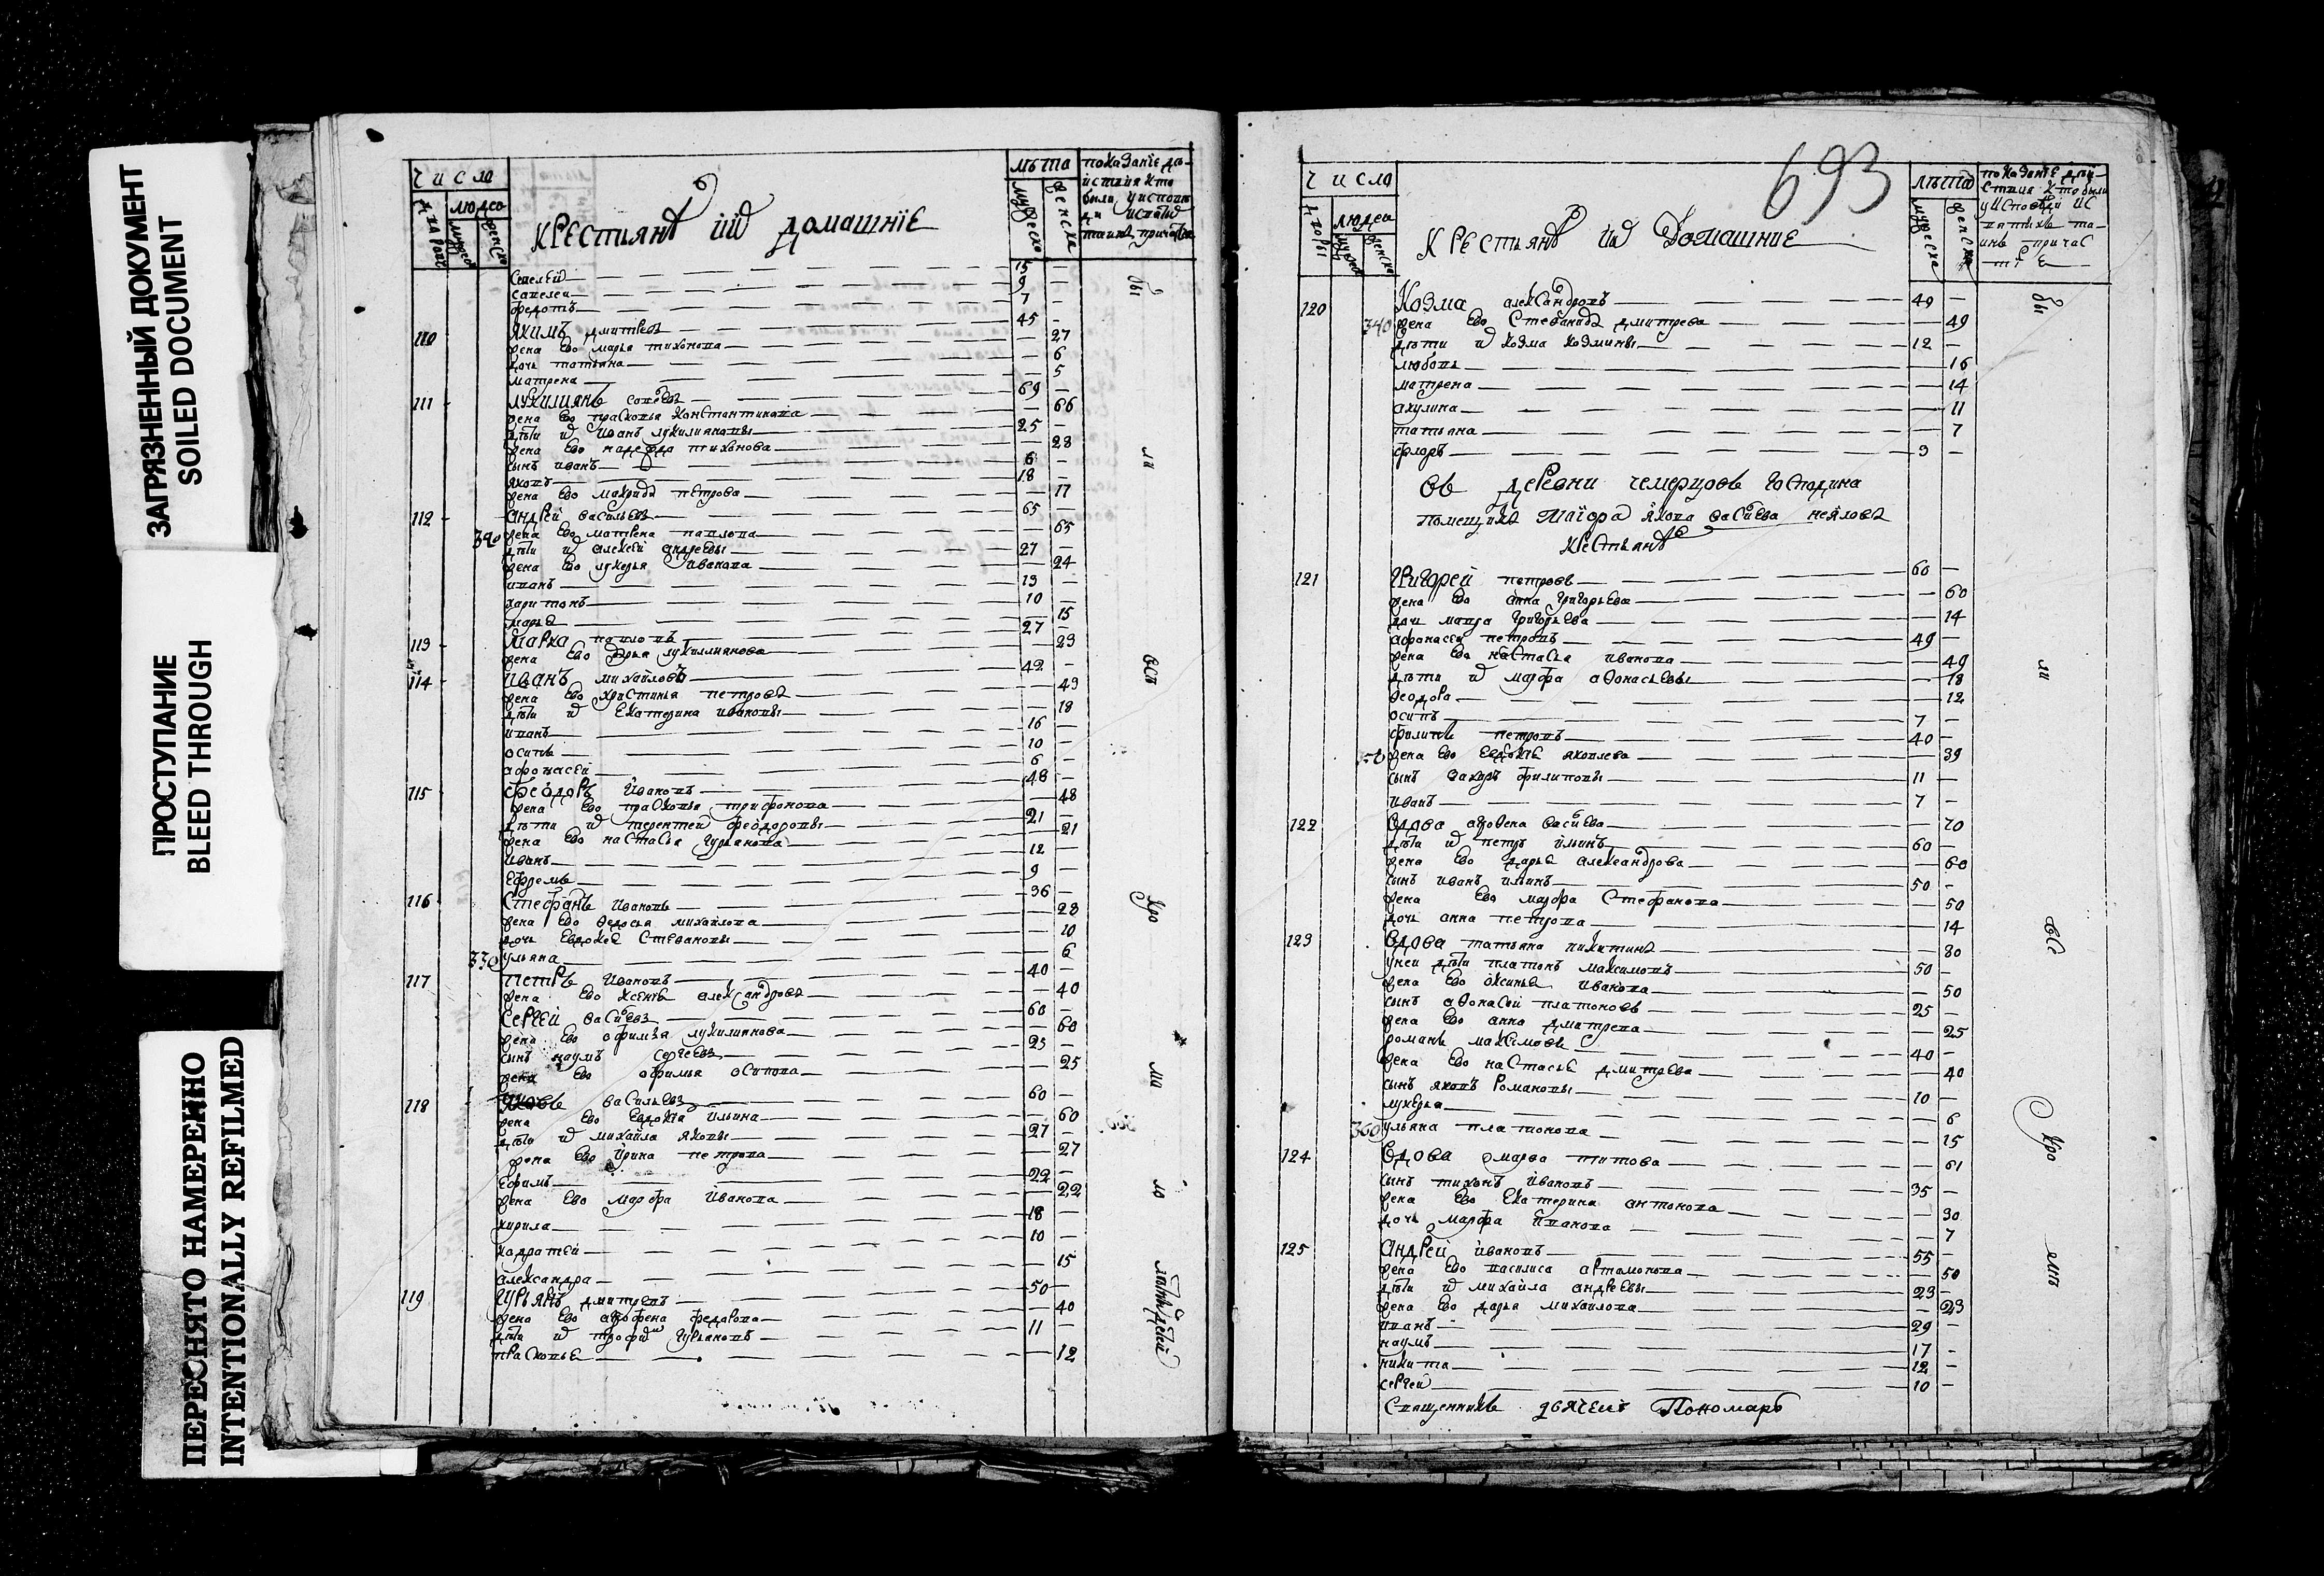 ЗАГРЯЗНЕННЫЙ ДОКУМЕНТ
SOILED DOCUMENT
ПРОСТУПАНИЕ
BLEED THROUGH
ПЕРЕСНЯТО НАМЕРЕННО
INTENTIONALLY REFILMED
число
людеи
крестьянъ ихъ домашніе
лѣта
мужеска
женска
савелеи 9
федотъ 7
110 якимъ дмитревъ 45
жена ево марья тихонова 27
дочь татьяна 6
матрена 5
111 лукилиянъ 69
жена ево прасковья константинова 66
дѣти их иванъ лукилияновы 25
жена ево надежда тихонова 28
сынъ иванъ 6
яковъ 18
жена ево петрова 17
112 андрей васильевъ 65
жена ево матрена павлова 65
дѣти их алексеи андреевы 27
жена ево лукерья иванова 24
иванъ 13
харитонъ 10
марья 15
113 марка павловъ 27
жена ево дарья лукиллиянова 23
114 иванъ михаиловъ 42
жена ево христинья петрова 43
дѣти их екатерина ивановы 18
иванъ 16
осипъ 10
афонасеи 6
115 феодоръ ивановъ 48
жена ево прасковья трифонова 48
дѣти их терентеи феодоровы 21
жена ево настасья гурьянова 21
иванъ 12
ефремъ 9
116 стефанъ ивановъ 36
жена ево федосья михаилова 28
дочь евдокея стефановы 10
330 ульяна 6
117 петръ ивановъ 40
жена ево ксенья александрова 40
сергеи васильевъ 60
жена ево офимья лукилиянова 60
сынъ наумъ сергеевъ 23
жена ево офимья осипова 25
118 яковъ васильевъ 60
жена ево евдокия ильина 60
дѣти их михаила яковы 27
жена ево ирина петрова 27
ефимъ 22
жена ево марфа иванова 22
кирила 18
кадратеи 10
александра 15
119 гурьянъ дмитревъ 50
жена ево агрофена федорова 40
дѣти их трофим гурьяновъ 11
прасковья 12
693
число
людеи
крестьянъ их домашние
лѣта
120 козма александровъ 49
340 жена ево стефанида дмитрева 49
дѣти их козма козмины 12
любовь 16
матрена 14
акулина 11
татьяна 7
флоръ 3
въ деревни чемерцове господина
помещика маіора якова васильева неялова
крестьянъ
121 григорей петровъ 60
жена ево анна григорьева 60
дочь мавра григорьева 14
афонасеи петровъ 49
жена ево настасья иванова 49
дѣти их марфа афонасьевы 18
феодора 12
осипъ 7
филипъ петровъ 40
жена ево евдокия яковлева 39
сынъ захаръ филиповы 11
иванъ 7
122 вдова васильева 70
дѣти их петръ ильинъ 60
жена ево дарья александрова 60
сынъ иванъ ильинъ 50
жена ево марфа стефанова 50
дочь анна петрова 14
123 вдова татьяна никитина 80
у неи дѣти платонъ максимовъ 50
жена ево оксинья иванова 50
сынъ афонасеи платоновъ 25
жена ево анна дмитрева 25
романъ максимовъ 40
жена ево настасья дмитрева 40
сынъ яковъ романовы 10
лукерья 6
360 ульяна платонова 15
124 вдова марфа титова 61
сынъ тихонъ ивановъ 35
жена ево екатерина антонова 30
дочь марфа иванова 7
125 андрей ивановъ 55
жена ево василиса артамонова 50
дѣти их михаила андреевы 23
жена ево дарья михаилова 23
иванъ 29
наумъ 17
никита 12
сергеи 10
священникъ дьячекъ пономарь